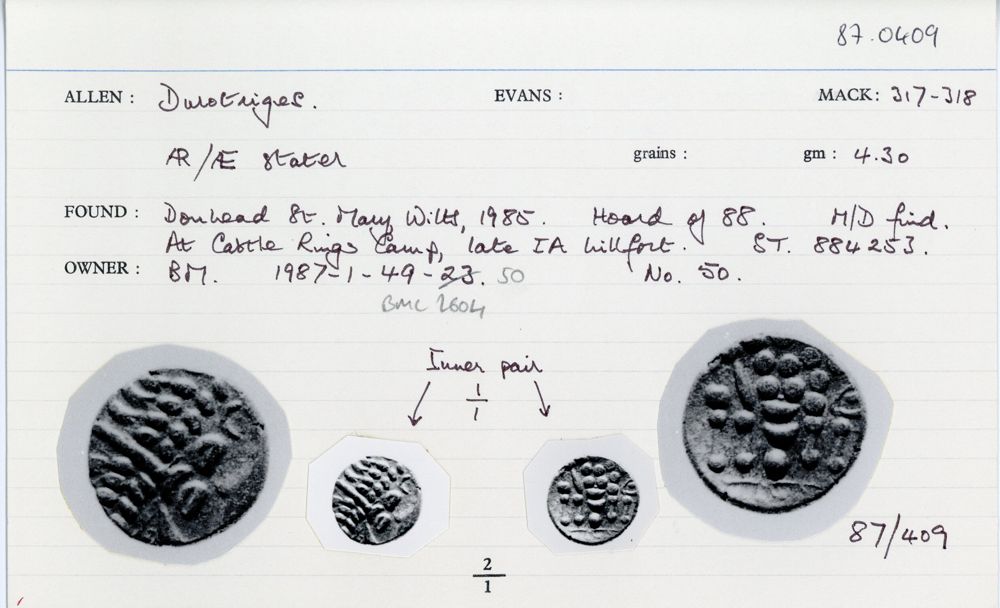 87.0409
ALLEN : Durotriges. EVANS : MACK: 317-318
AR/Æ Stater grains : gm : 4.30
FOUND : Donhead St. Mary, Wilts, 1985. Hoard of 88. M/D find.
At Castle Rings Camp, late IA hillfort. ST. 884253.
OWNER : BM. 1987-1-49-23. 50 No. 50.
BMC 2604
Inner pair
1/1
87/409
2/1